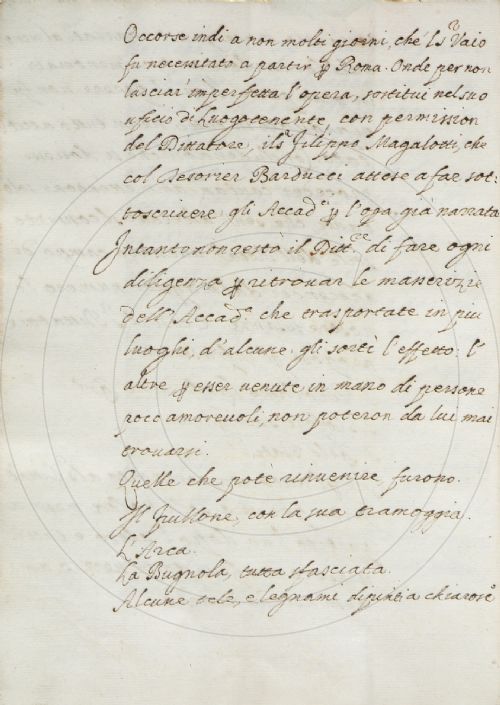 Occorse indi a non molti giorni, che 'l Sr. Vaio
fu necessitato a partir ꝑ Roma. Onde per non
lasciar imperfetta l'opera, sostituì nel suo
uficio di Luogotenente, con permission
del Dittatore, il Sr. Filippo Magalotti, che
col Tesorier Barducci attese a far sot:
toscrivere gli Accad.ci ꝑ l'opa. già narrata
Intanto non restò il Ditt.re di fare ogni
diligenza ꝑ ritrovar le masserizie
dell'Accad.a che trasportate in più
luoghi, d'alcune gli sortì l'effetto: l'
altre ꝑ esser venute in mano di persone
poco amorevoli, non poteron da lui mai
trovarsi.
Quelle che potè rinvenire, furono.
Il Frullone, con la sua tramoggia.
L'Arca.
La Bugnola, tutta sfasciata.
Alcune tele, e legnami dipinti a chiaroso.